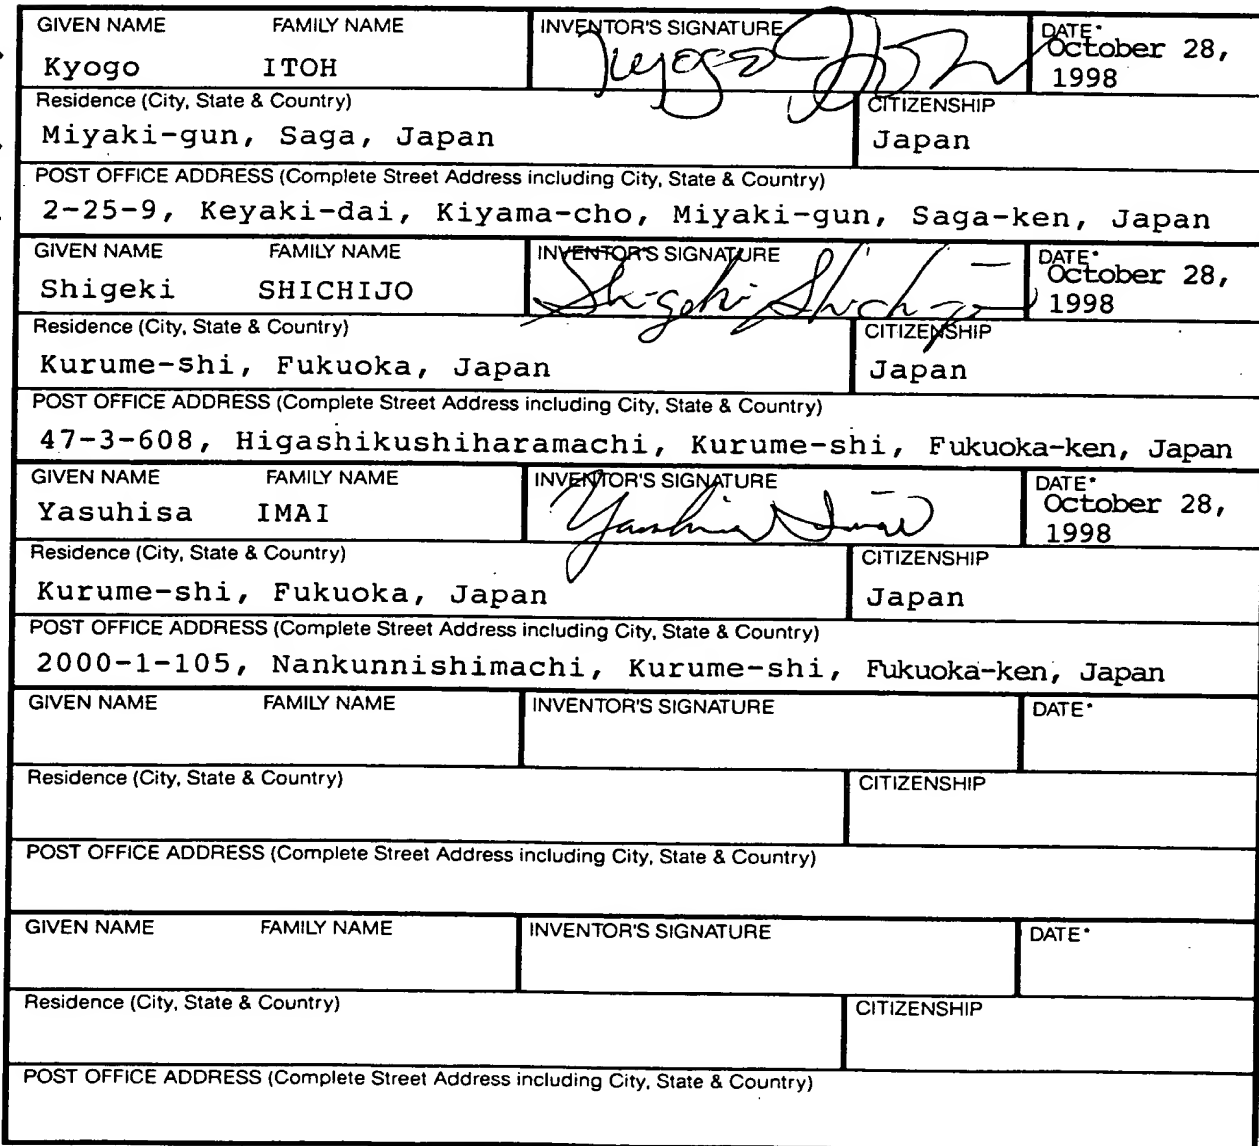 GIVEN NAME FAMILY NAME INVENTOR'S SIGNATURE DATE*
Kyogo ITOH Kyogo Itoh October 28,
1998
Residence (City, State & Country) CITIZENSHIP
Miyaki-gun, Saga, Japan Japan
POST OFFICE ADDRESS (Complete Street Address including City, State & Country)
2-25-9, Keyaki-dai, Kiyama-cho, Miyaki-gun, Saga-ken, Japan
GIVEN NAME FAMILY NAME INVENTOR'S SIGNATURE DATE*
Shigeki SHICHIJO Shigeki Shichijo October 28,
1998
Residence (City, State & Country) CITIZENSHIP
Kurume-shi, Fukuoka, Japan Japan
POST OFFICE ADDRESS (Complete Street Address including City, State & Country)
47-3-608, Higashikushiharamachi, Kurume-shi, Fukuoka-ken, Japan
GIVEN NAME FAMILY NAME INVENTOR'S SIGNATURE DATE*
Yasuhisa IMAI Yasuhisa Imai October 28,
1998
Residence (City, State & Country) CITIZENSHIP
Kurume-shi, Fukuoka, Japan Japan
POST OFFICE ADDRESS (Complete Street Address including City, State & Country)
2000-1-105, Nankunnishimachi, Kurume-shi, Fukuoka-ken, Japan
GIVEN NAME FAMILY NAME INVENTOR'S SIGNATURE DATE*
Residence (City, State & Country) CITIZENSHIP
POST OFFICE ADDRESS (Complete Street Address including City, State & Country)
GIVEN NAME FAMILY NAME INVENTOR'S SIGNATURE DATE*
Residence (City, State & Country) CITIZENSHIP
POST OFFICE ADDRESS (Complete Street Address including City, State & Country)